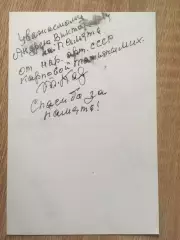 Уважаемому
Андрею Виктор
на Память
от нар. арт. СССР
Карповой Татьяны Мих.
Спасибо за
память!